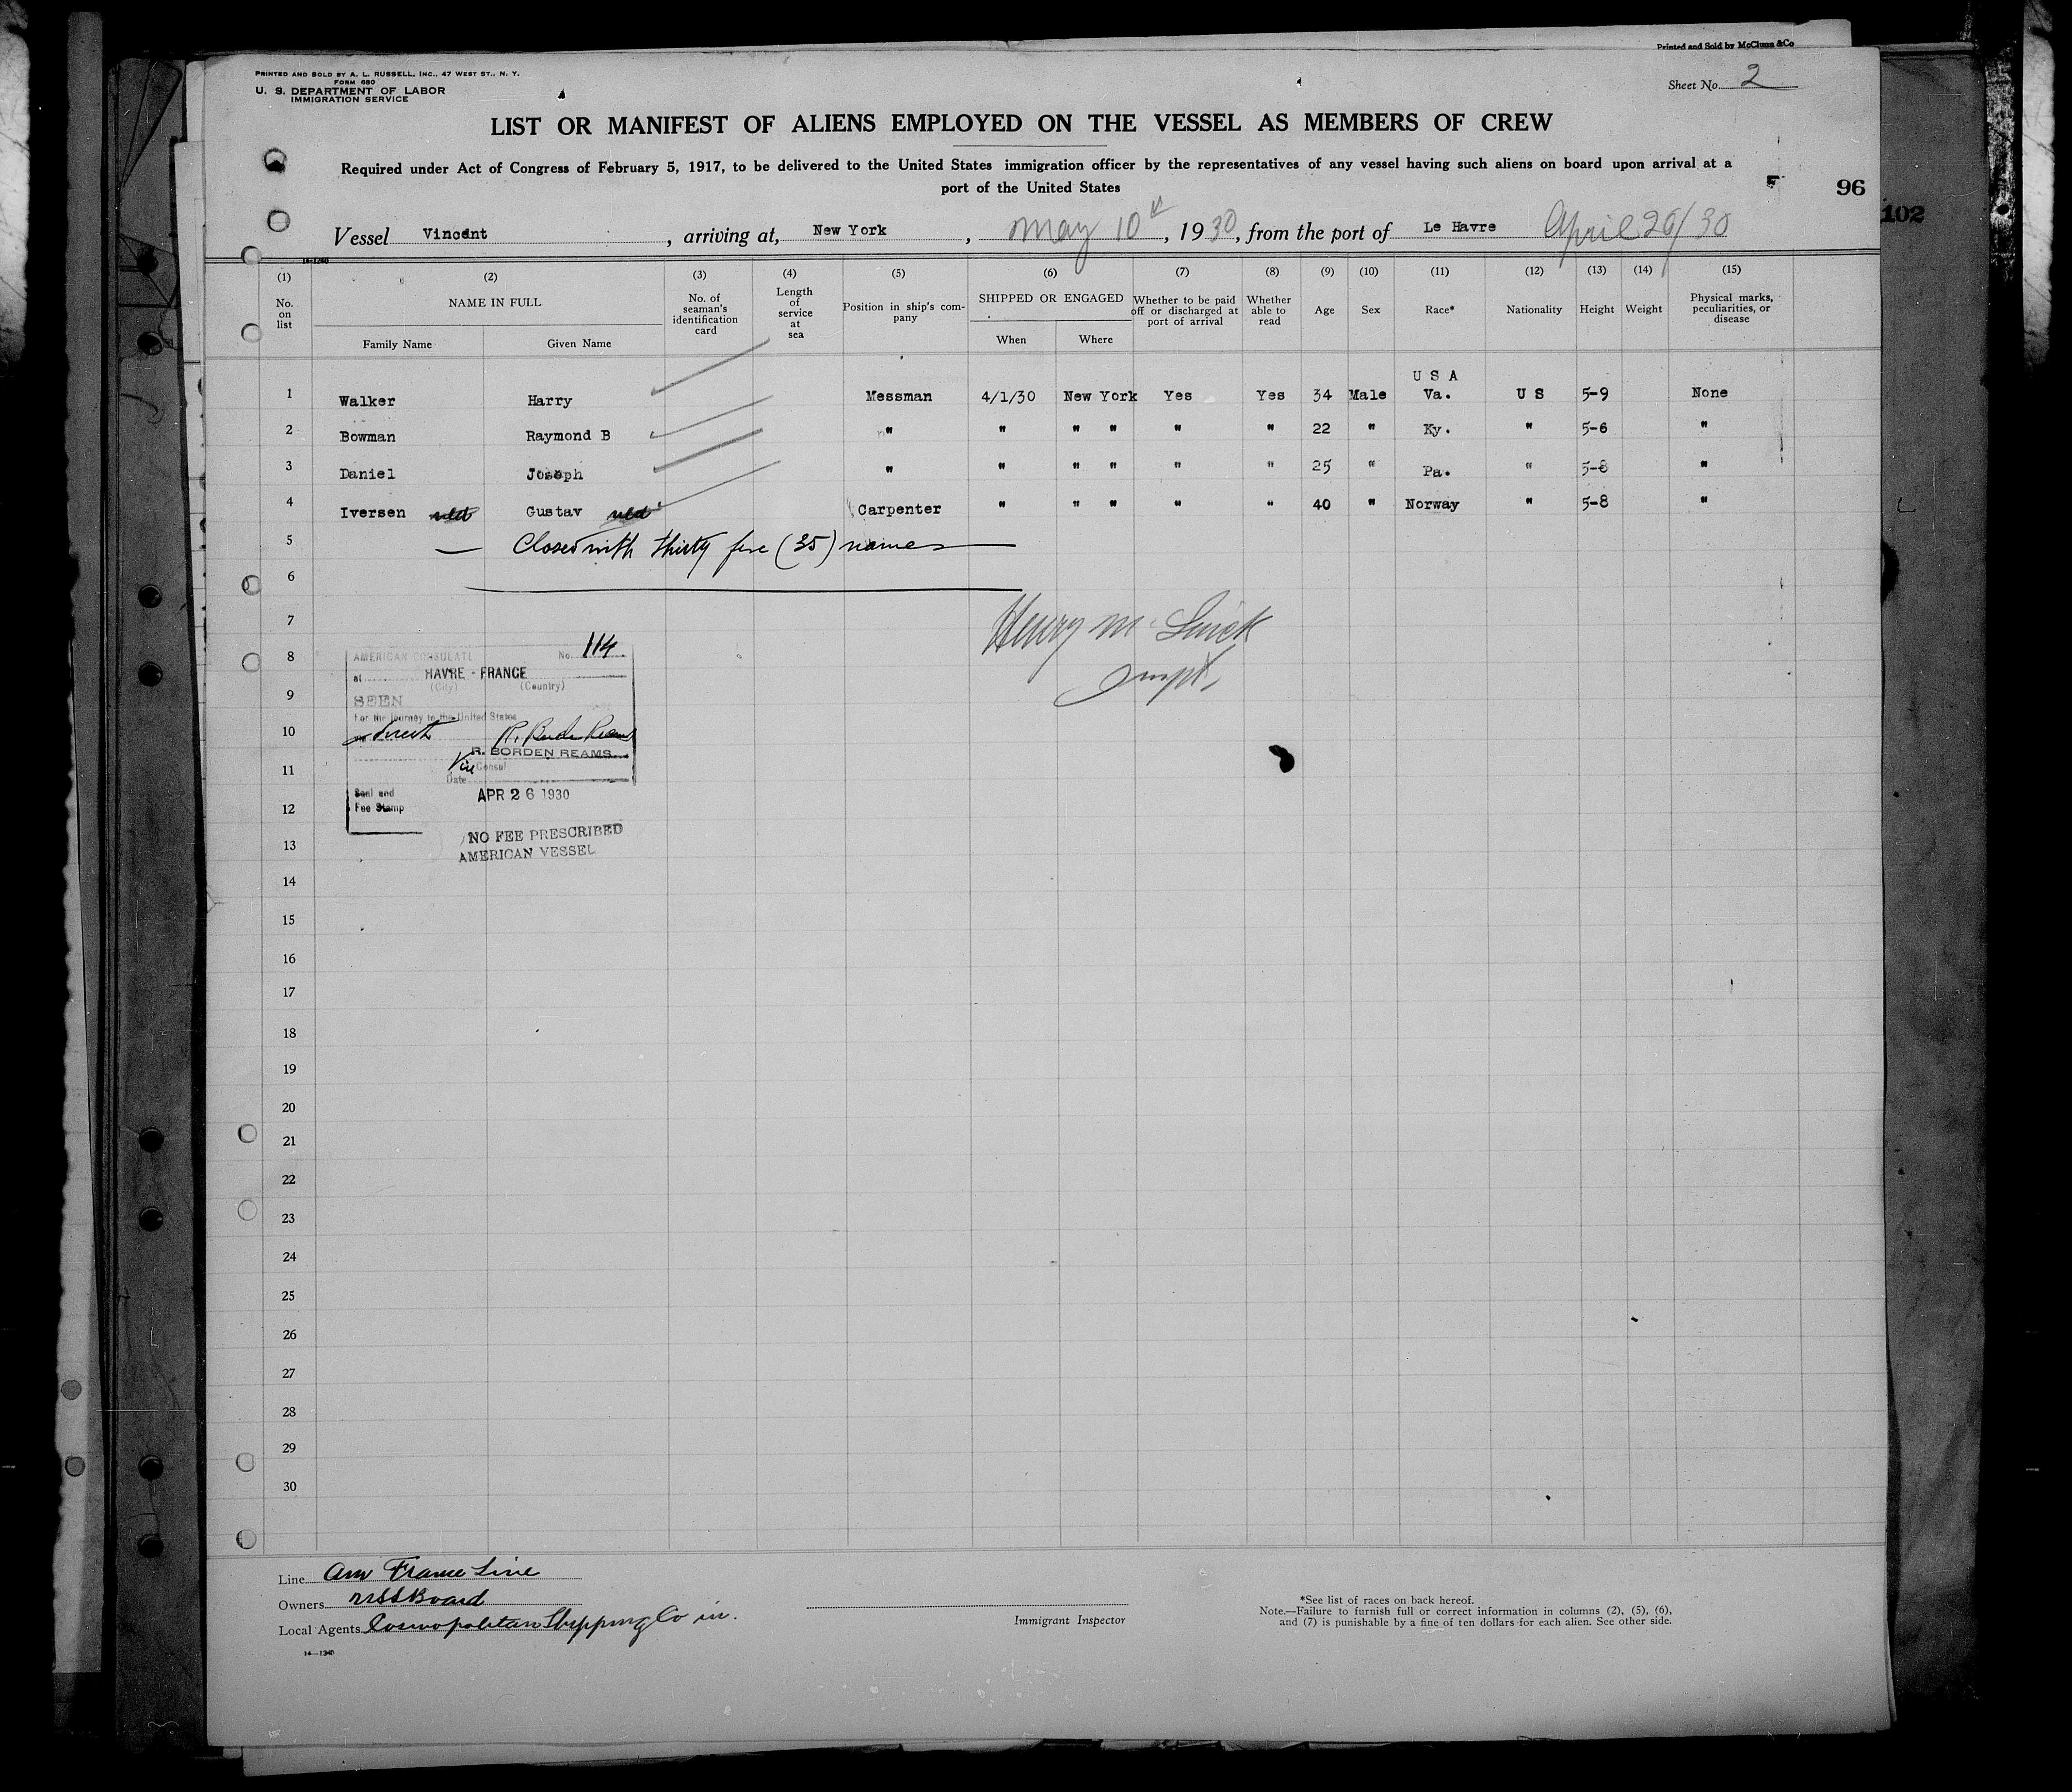 Printed and Sold by McClunn & Co
PRINTED AND SOLD BY A. L. RUSSELL, INC., 47 WEST ST., N. Y.
FORM 680
U. S. DEPARTMENT OF LABOR
IMMIGRATION SERVICE
Sheet No. 2
LIST OR MANIFEST OF ALIENS EMPLOYED ON THE VESSEL AS MEMBERS OF CREW
Required under Act of Congress of February 5, 1917, to be delivered to the United States immigration officer by the representatives of any vessel having such aliens on board upon arrival at a
port of the United States
96
102
Vessel Vincent, arriving at, New York, May 10th, 1930, from the port of Le Havre April 26/30
(1) (2) (3) (4) (5) (6) (7) (8) (9) (10) (11) (12) (13) (14) (15)
No. on list NAME IN FULL Family Name Given Name No. of seaman's identification card Length of service at sea Position in ship's company SHIPPED OR ENGAGED When Where Whether to be paid off or discharged at port of arrival Whether able to read Age Sex Race* Nationality Height Weight Physical marks, peculiarities, or disease
U S A
1 Walker Harry Messman 4/1/30 New York Yes Yes 34 Male Va. U S 5-9 None
2 Bowman Raymond B " " " " " " 22 " Ky. " 5-6 "
3 Daniel Joseph " " " " " " 25 " Pa. " 5-8 "
4 Iversen Gustav Carpenter " " " " " 40 " Norway " 5-8 "
5 Closed with thirty five (35) names
6
7
8
9
10
11
12
13
14
15
16
17
18
19
20
21
22
23
24
25
26
27
28
29
30
AMERICAN CONSULATE No. 114
at HAVRE - FRANCE
(City) (Country)
SEEN
For the journey to the United States
direct
R. BORDEN REAMS
Vice Consul
Date
Seal and
Fee Stamp
APR 26 1930
NO FEE PRESCRIBED
AMERICAN VESSEL
Line Am France Line
Owners USS Board
Local Agents Cosmopolitan Shipping Co in.
Immigrant Inspector
*See list of races on back hereof.
Note.—Failure to furnish full or correct information in columns (2), (5), (6),
and (7) is punishable by a fine of ten dollars for each alien. See other side.